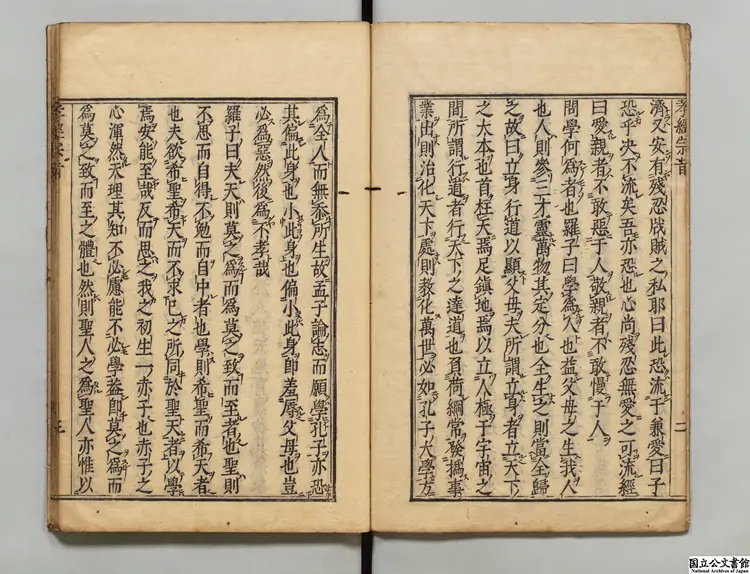 孝經宗旨
濟又安有殘忍戕賊之私耶曰此恐流于兼愛曰子
恐乎决不流矣吾亦恐也心尚殘忍無愛之可流經
曰愛親者不敢惡于人敬親者不敢慢于人
問學何爲者也羅子曰學爲人也益父母之生我人
也人則參三才靈萬物其定分也全生之則當全歸
之故曰立身行道以顯父母夫所謂立身者立天下
之大本也首柱天焉足鎮地焉以立人極于宇宙之
間所謂行道者行天下之達道也負荷綱常發揮事
業出則治化天下處則教化萬世必如孔子大學方
二
爲全人而無忝所生故孟子論志而願學孔子亦恐
其偏此身也小此身也偏小此身卽羞辱父母也豈
必爲惡然後爲不孝哉
羅子曰夫天則莫之爲而爲莫之致而至者也聖則
不思而自得不勉而自中者也學則希聖而希天者
也夫欲希聖希天而不求已之所同於聖天者以學
焉安能至哉反而思之我之初生一赤子也赤子之
心渾然天理其知不必慮能不必學益卽莫之爲而
爲莫之致而至之體也然則聖人之爲聖人亦惟以
孝經宗旨
三
国立公文書館
National Archives of Japan